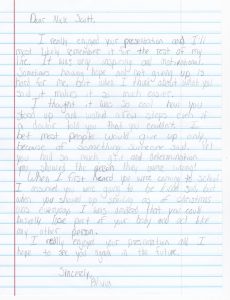 Dear Nick Scott,
I really enjoyed your presentation and I'll
most likely remember it for the rest of my
life. It was very inspiring and motivational.
Sometimes having hope and not giving up is
hard for me, but when I think about what you
said it makes it so much easier.
I thought it was so cool how you
stood up and walked a few steps even if
a doctor told you that you couldn't. I
bet most people would give up only
because of something someone said. Yet
you had so much grit and determination
you showed the person they were wrong!
When I first heard you were coming to school
I assumed you were going to be kinda sad but
when you showed up smiling as if christmas
was everyday I was amazed that you could
basically lose part of your body and act like
any other person.
I really enjoyed your presentation and I
hope to see you again in the future.
Sincerely,